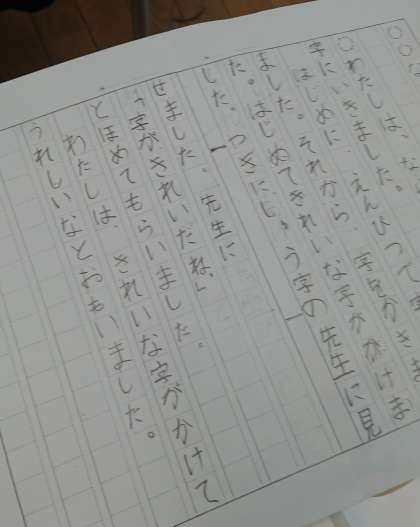 ○わたしは、な
字にいきました。
はじめに、えんぴつで字
ました。それから、字をかきま
た。はじめてきれいな字がかけま
した。つぎにしゅう字の先生に見
せました。先生に
「字がきれいだね」
とほめてもらいました。
わたしは、きれいな字がかけて
うれしいなとおもいました。